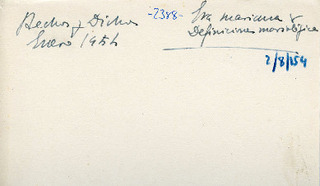 Hechos y Dichos
Enero 1954
-2388-
Era mariana y
Definiciones mariológicas
2/8/54